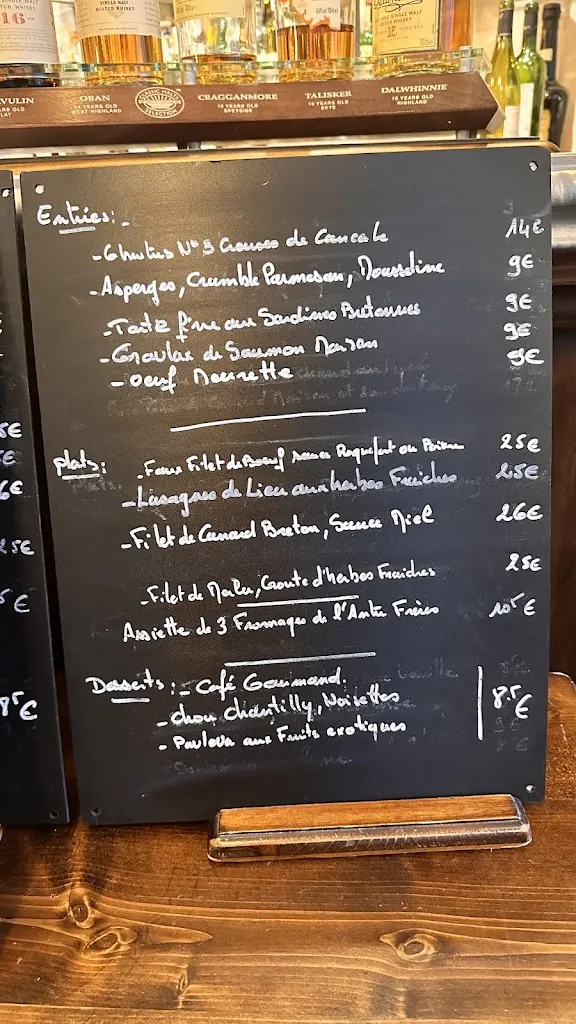 16
SINGLE MALT
SCOTCH WHISKY
VULIN
OBAN
14 YEARS OLD
WEST HIGHLAND
CLASSIC MALTS
SELECTION
CRAGGANMORE
12 YEARS OLD
SPEYSIDE
TALISKER
10 YEARS OLD
SKYE
DALWHINNIE
15 YEARS OLD
HIGHLAND
Entrées:
- 6 huîtres N°3 Creuses de Cancale 14€
- Asperges, Crumble Parmesan, Mousseline 9€
- Tarte fine aux Sardines Bretonnes 9€
- Gravlax de Saumon Maison 9€
- Oeuf Meurette 9€
Plats:
- Faux Filet de Boeuf sauce Roquefort ou Poivre 25€
- Lasagnes de Lieu aux herbes Fraîches 25€
- Filet de Canard Breton, Sauce Miel 26€
- Filet de Merlu, Croute d'herbes Fraiches 25€
Assiette de 3 Fromages de l'Antre Frères 10,5€
Desserts: - Café Gourmand.
- Chou Chantilly, Noisettes
- Pavlova aux Fruits exotiques
8,5€